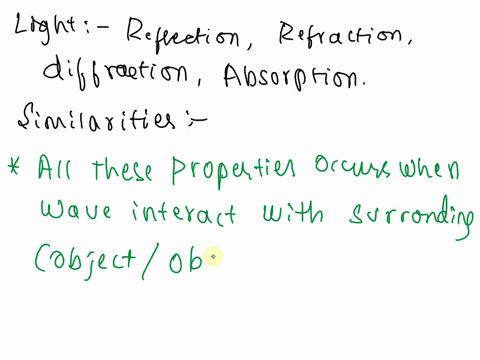 Light:- Reflection, Refraction,
diffraction, Absorption.
Similarities:-
* All these properties occurs when
wave interact with surronding
(object/ob